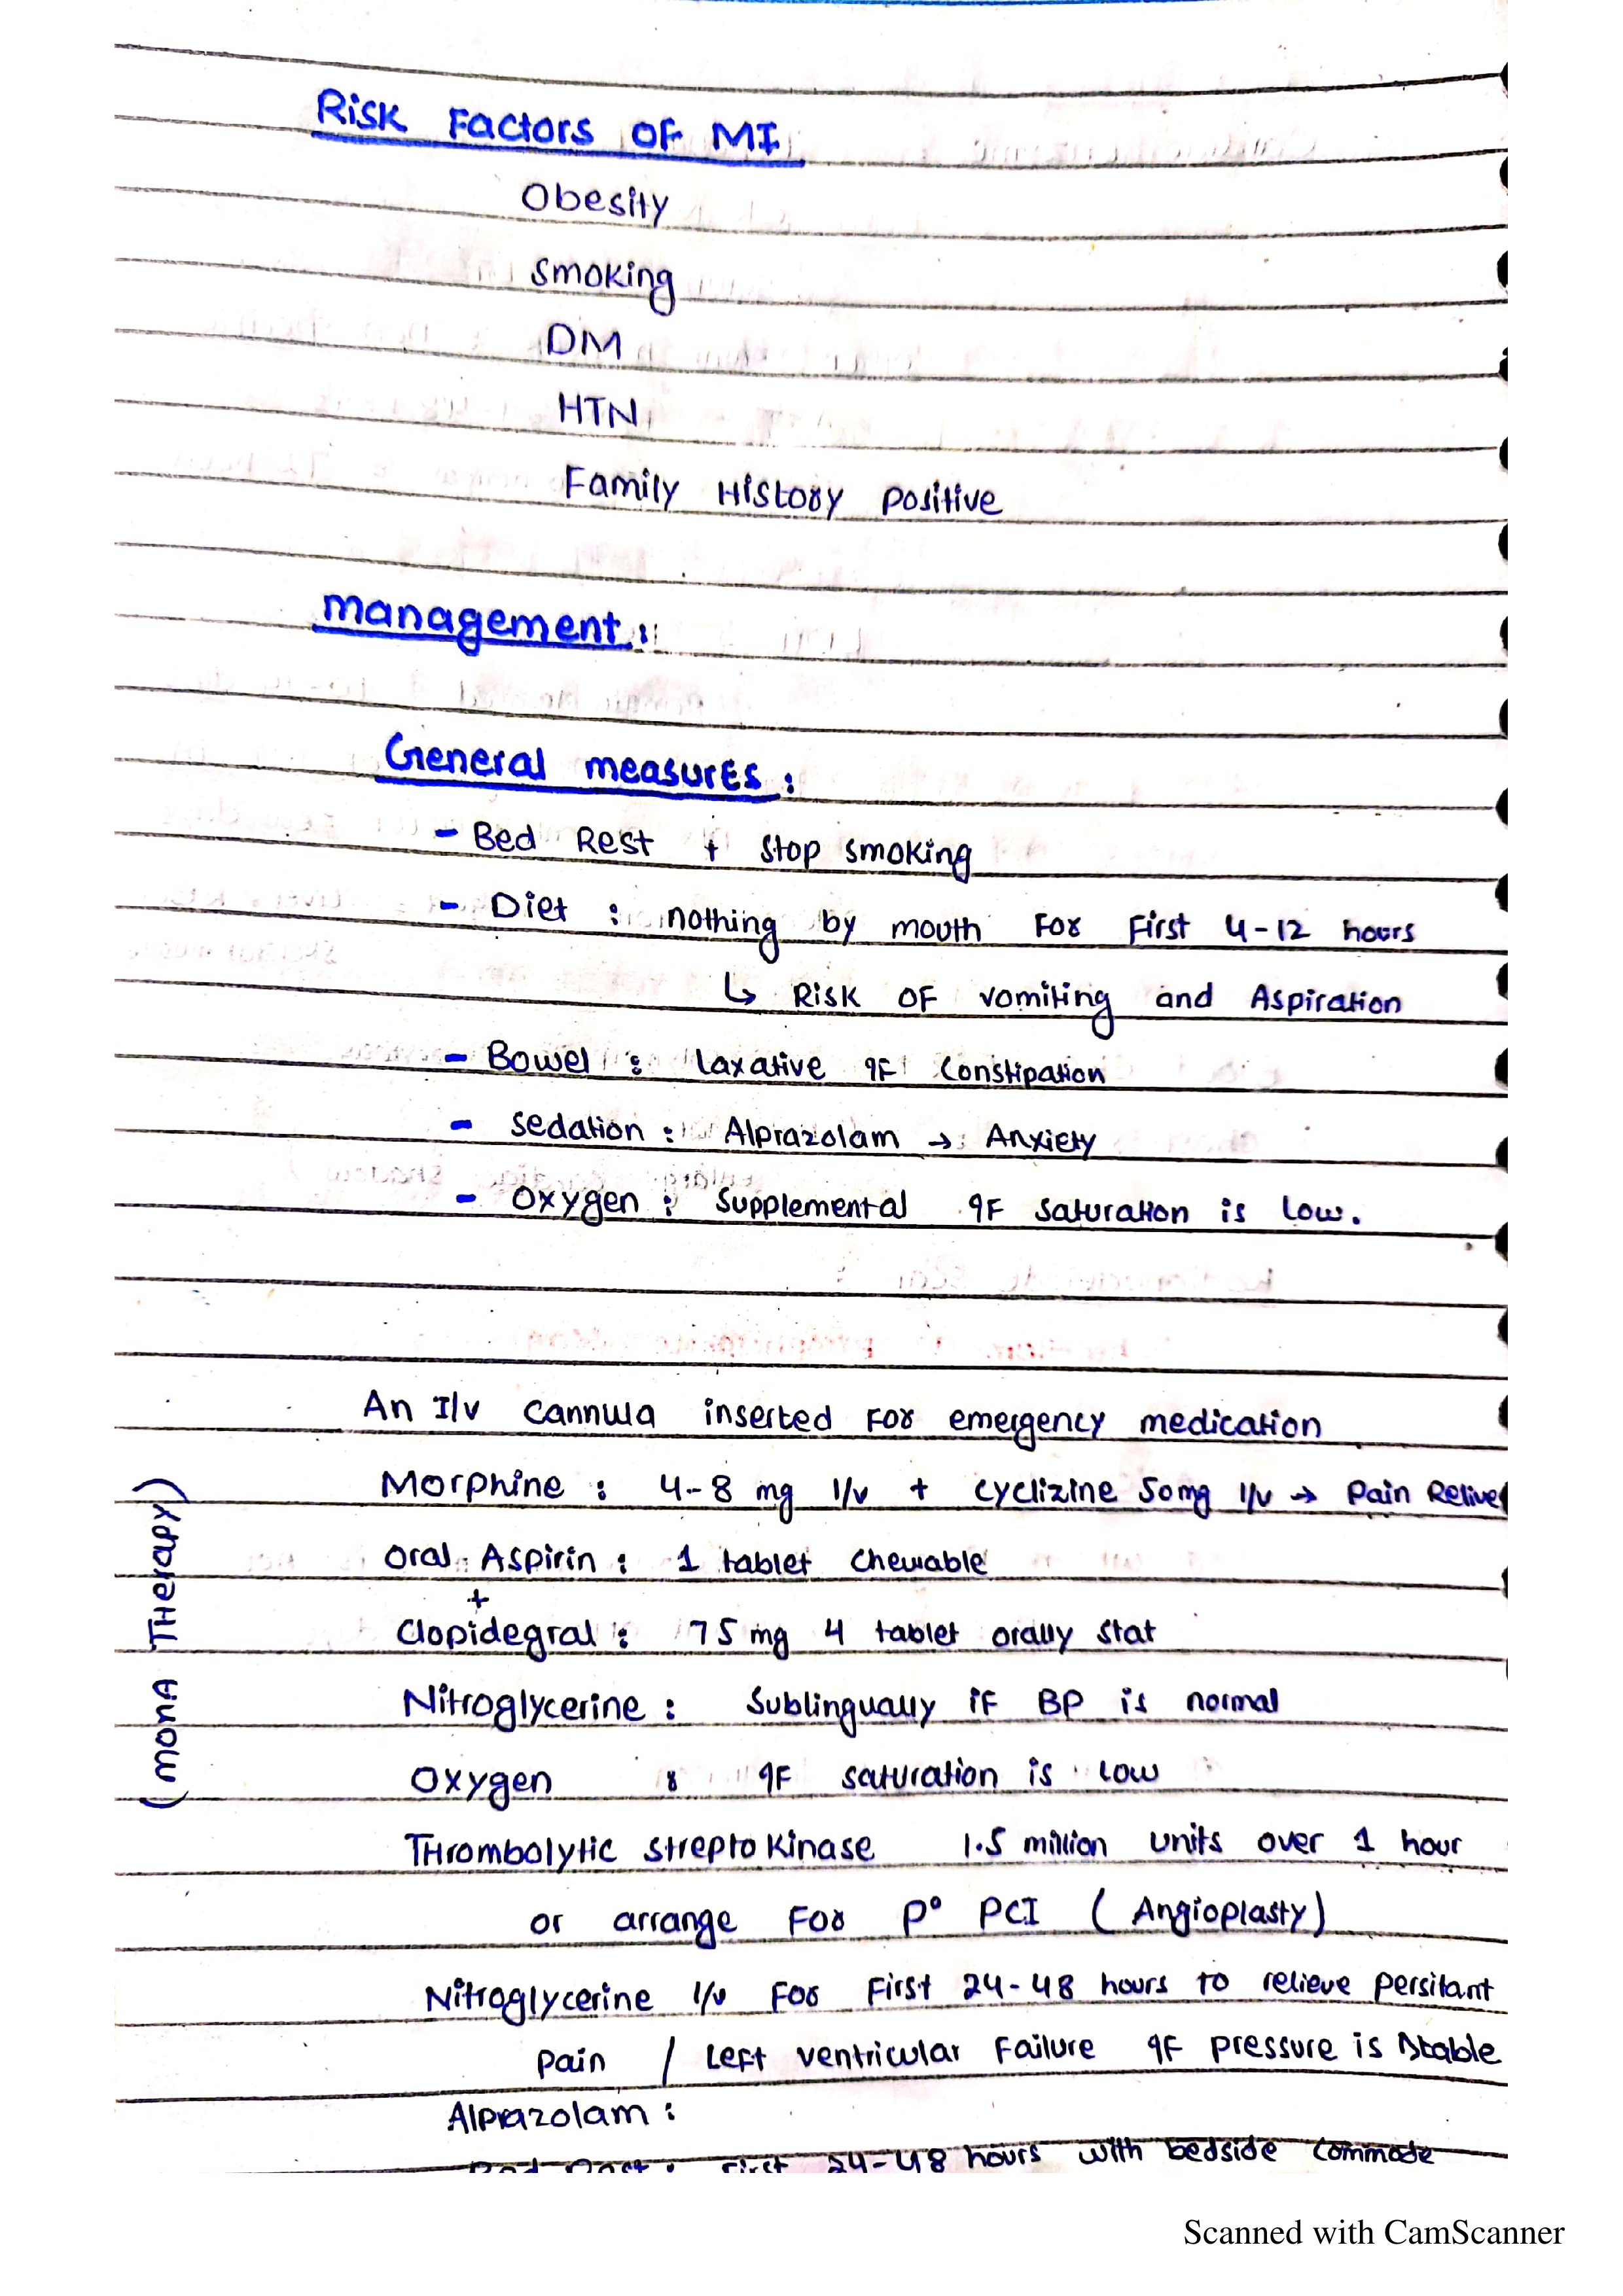 Risk Factors OF MI
Obesity
Smoking
DM
HTN
Family History Positive
management :
General measures :
- Bed Rest + Stop smoking
- Diet : nothing by mouth For First 4-12 hours
↳ Risk OF vomiting and Aspiration
- Bowel : laxative IF Constipation
- Sedation : Alprazolam → Anxiety
- Oxygen : Supplemental IF Saturation is low.
An I/v cannula inserted For emergency medication
Morphine : 4-8 mg I/v + cyclizine 50mg I/v → Pain Relive
Oral Aspirin : 1 tablet Chewable
+
Clopidegral : 75 mg 4 tablet orally Stat
Nitroglycerine : Sublingually if BP is normal
Oxygen : IF saturation is low
(MONA THerapy)
THrombolytic Streptokinase 1.5 million units over 1 hour
or arrange For P° PCI (Angioplasty)
Nitroglycerine I/v For First 24-48 hours to relieve Persitant
Pain / Left ventricular Failure IF Pressure is Stable
Alprazolam :
Bed Rest : First 24-48 hours with bedside Commode
Scanned with CamScanner